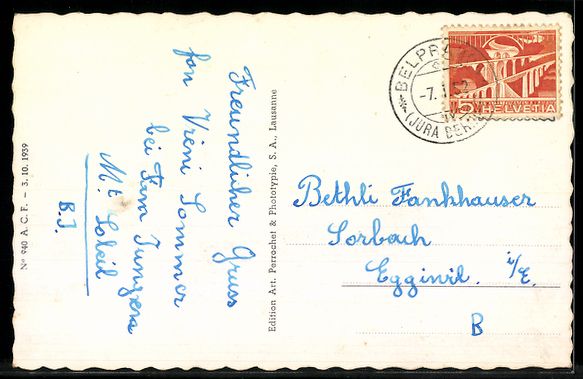 Freundlicher Gruss
fon Vreni Sommer
bei Fam
Mt. Soleil
B.J.
Nº 940 A. C. F. – 3. 10. 1939
Edition Art. Perrochet & Phototypie, S. A., Lausanne
-7.
(JURA BERN
5
HELVETIA
Bethli Fankhauser
Sorbach
Egginil. i/E.
B